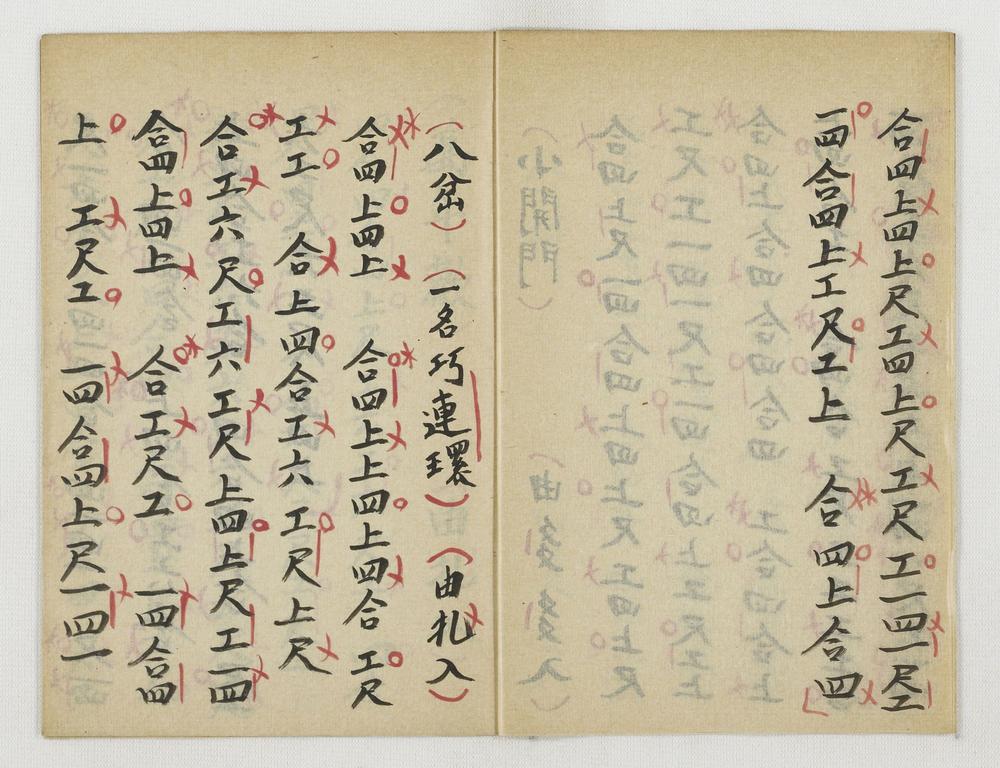 合四上四上尺工四上尺工尺工一四一尺工
一四合四上工尺工上 合四上合四
（八岔）（一名巧連環）（由札入）
合四上四上 合四上上四上四合 工尺
工工 合上四合工六 工尺上尺
合工六尺工六工尺上四上尺工一四
合四上四上 合工尺工 一四合四
上 工尺工 一四合四上尺一四一